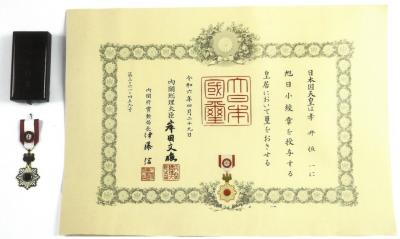 日本国天皇は井一に
旭日小綬章を授与する
皇居において璽をおさせる
大日本國璽
令和六年四月二十九日
内閣総理大臣 岸田文雄
内閣府賞勲局長 伊藤信